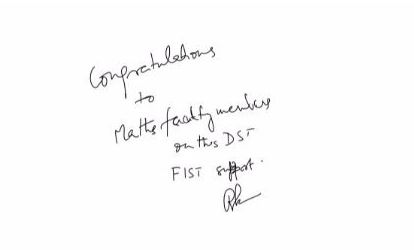 Congratulations
to
Maths faculty members
on this DST
FIST support.